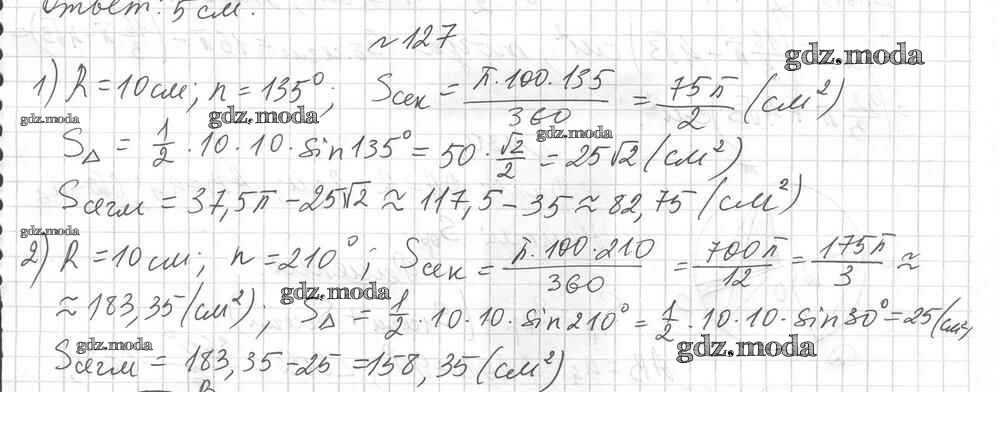 Ответ: 5 см.
№127
gdz.moda
1) R = 10 см; n = 135°; Sсек = π·100·135/360 = 75π/2 (см²)
gdz.moda gdz.moda gdz.moda
S△ = 1/2 · 10 · 10 · sin 135° = 50 · √2/2 = 25√2 (см²)
Sсегм = 37,5π - 25√2 ≈ 117,5 - 35 ≈ 82,75 (см²)
gdz.moda
2) R = 10 см; n = 210°; Sсек = π·100·210/360 = 700π/12 = 175π/3 ≈
gdz.moda
≈ 183,35 (см²); S△ = 1/2 · 10 · 10 · sin 210° = 1/2 · 10 · 10 · sin 30° = 25 (см²)
gdz.moda gdz.moda
Sсегм = 183,35 - 25 = 158,35 (см²)